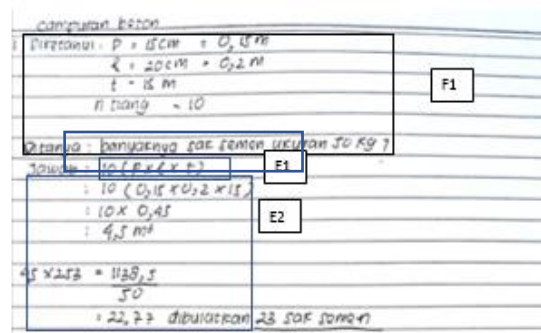 campuran beton
Diketahui : P = 15 cm = 0,15 m
l = 20 cm = 0,2 m
t = 15 m
n tiang = 10
F1
Ditanya : banyaknya sak semen ukuran 50 kg ?
Jawab : 10 (P x l x t)
E1
: 10 (0,15 x 0,2 x 15)
: 10 x 0,45
: 4,5 m³
E2
45 x 253 = 1138,5
50
= 22,77 dibulatkan 23 sak semen